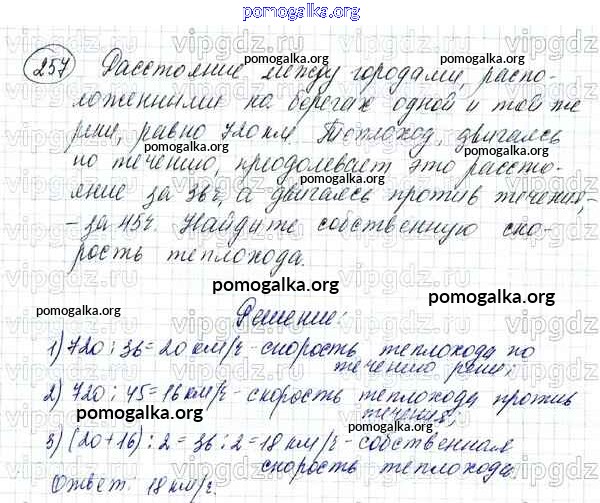 pomogalka.org
257 Расстояние между городами, распо-
ложенными на берегах одной и той же
реки, равно 720 км. Теплоход, двигаясь
по течению, преодолевает это рассто-
яние за 36 ч, а двигаясь против течения,
- за 45 ч. Найдите собственную ско-
рость теплохода.
pomogalka.org
Решение:
1) 720 : 36 = 20 км/ч - скорость теплохода по
течению реки;
2) 720 : 45 = 16 км/ч - скорость теплохода против
течения;
pomogalka.org
3) (20 + 16) : 2 = 36 : 2 = 18 км/ч - собственная
скорость теплохода.
Ответ: 18 км/ч.